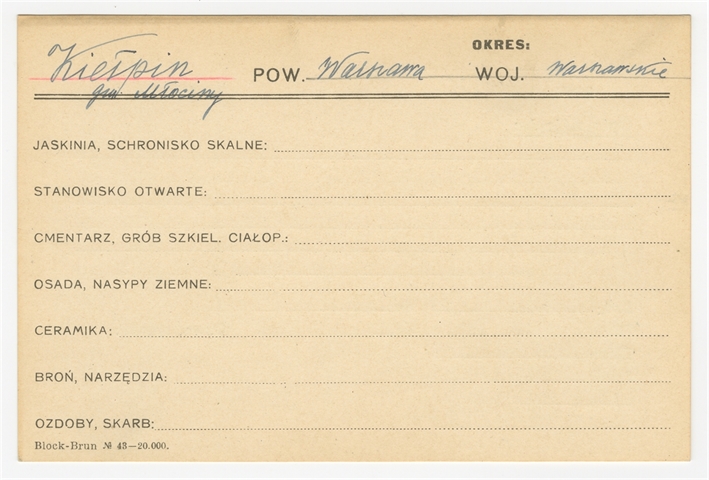 OKRES:
Kiełpin POW. Warszawa WOJ. Warszawskie
gm Młociny
JASKINIA, SCHRONISKO SKALNE:
STANOWISKO OTWARTE:
CMENTARZ, GRÓB SZKIEL. CIAŁOP.:
OSADA, NASYPY ZIEMNE:
CERAMIKA:
BROŃ, NARZĘDZIA:
OZDOBY, SKARB:
Block-Brun № 43—20.000.